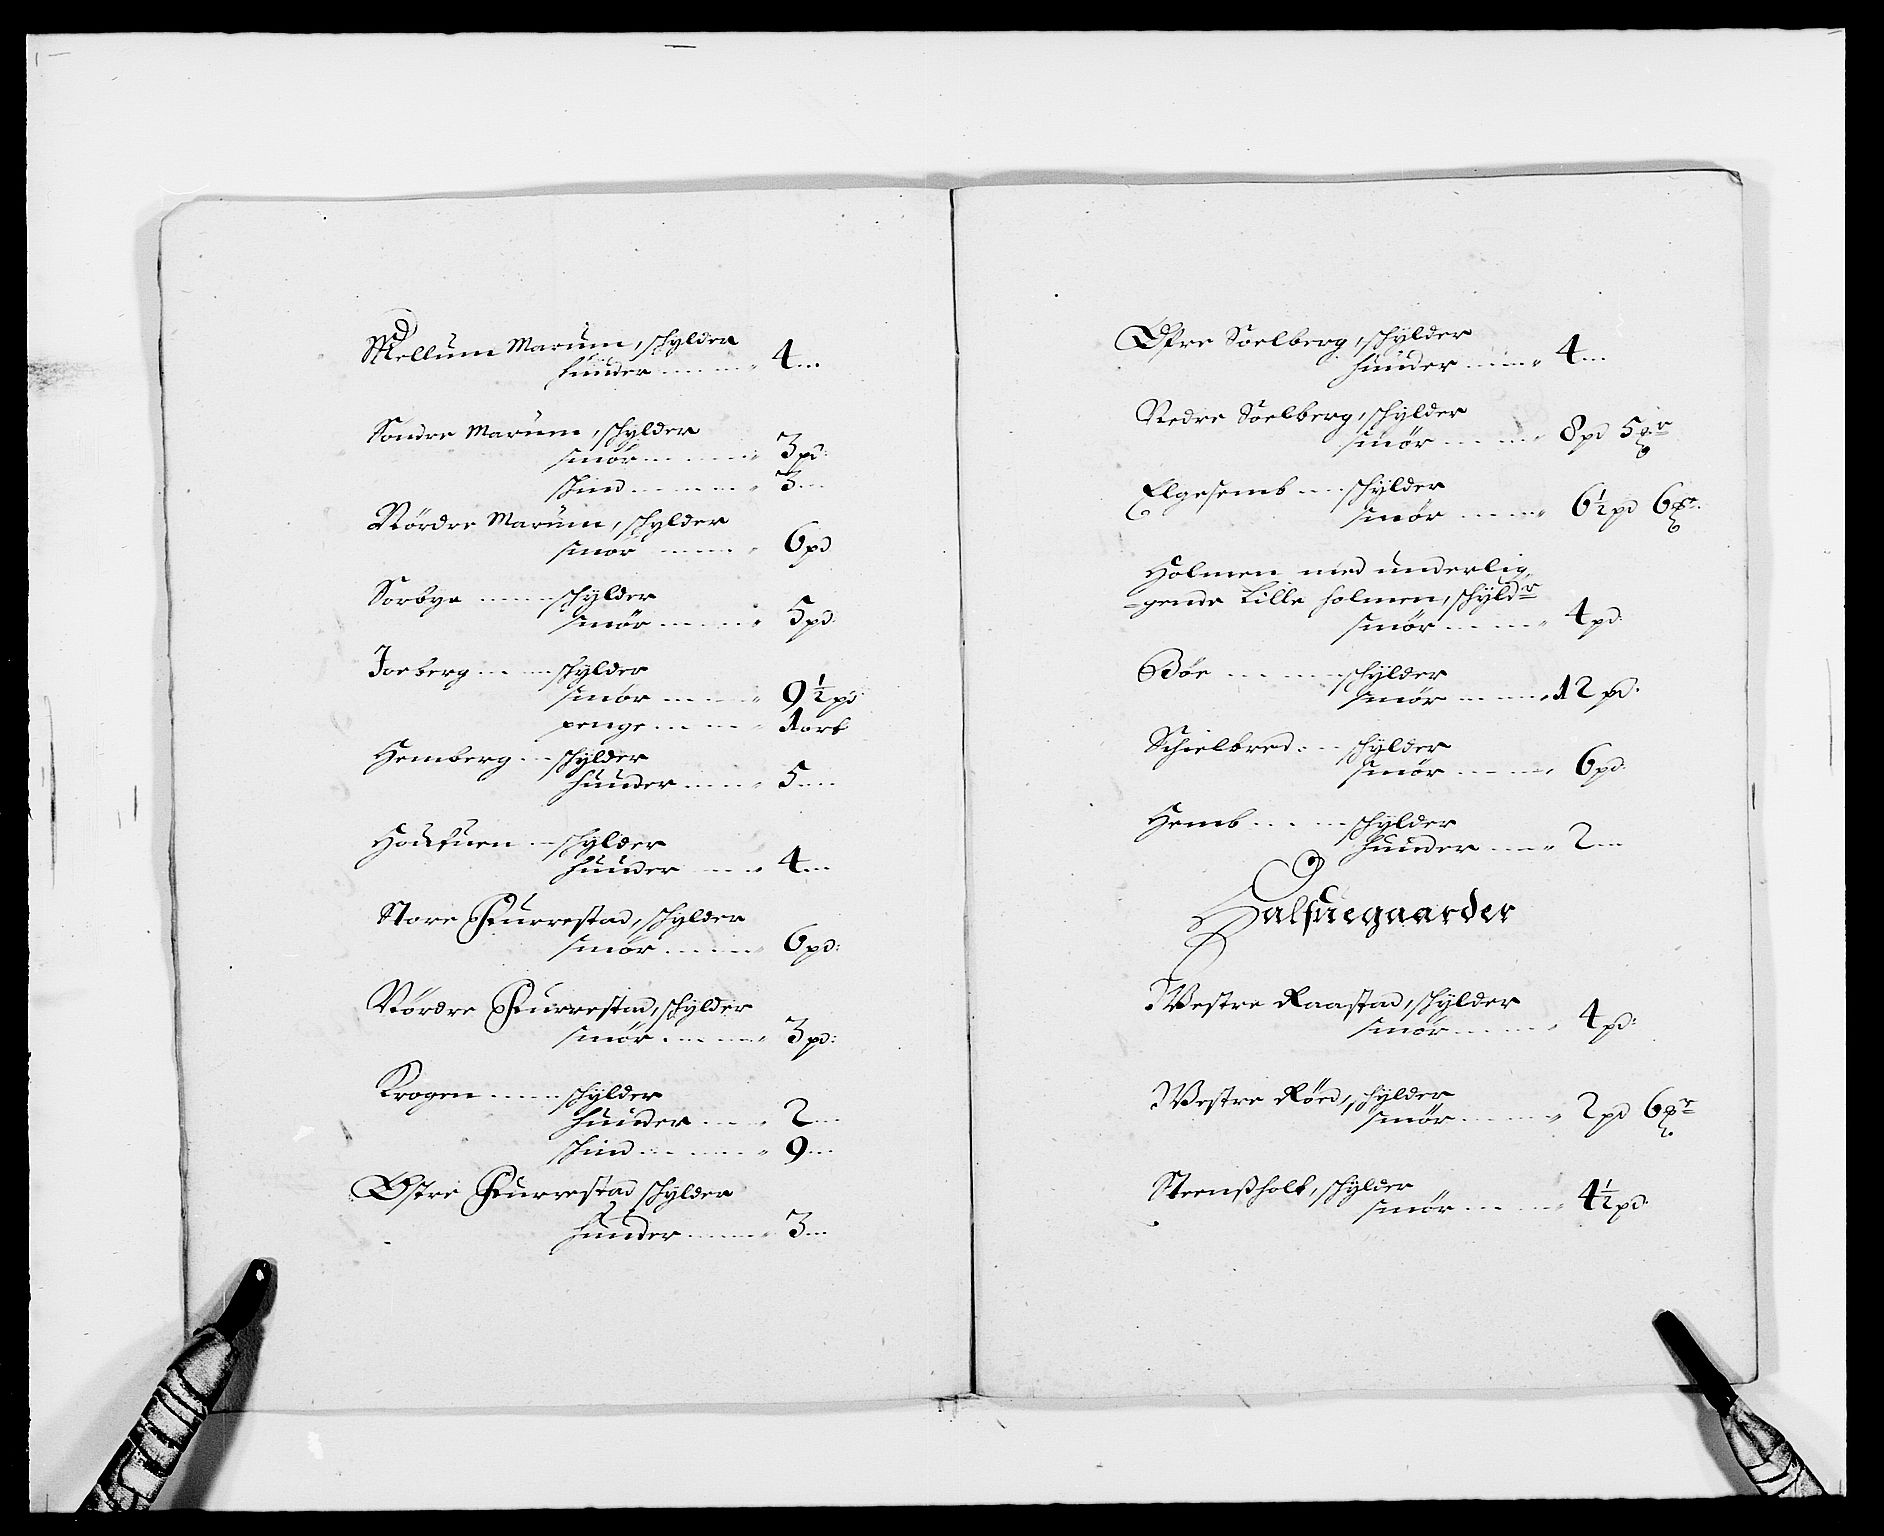 Mellum Marum, schylder
huuder ........ 4 ...
Sondre Marum, schylder
smör ........ 3 pd:
schind ........ 3 ...
Nördre Marum, schylder
smör ........ 6 pd
Sorbye ........ schylder
smör ........ 5 pd:
Joeberg ........ schylder
smör ........ 9½ pd
penge ........ 1 ort
Hemberg ... schylder
huuder ........ 5 ...
schylder
huuder ........ 4 ...
Store Furrestad, schylder
smör ........ 6 pd:
Nördre Furrestad, schylder
smör ........ 3 pd:
Krogen ........ schylder
huuder ........ 2 ...
schind ........ 9 ...
Østre Furrestad schylder
huuder ........ 3 ...
Øfre Soelberg, schylder
huuder ........ 4 ...
Nedre Soelberg, schylder
smör ........ 8 pd 5
Elgesemb ... schylder
smör ........ 6½ pd 6
Holmen med underlig
-gende Lille holmen, schyldr
smör ........ 4 pd:
Böe ........ schylder
smör ........ 12 pd:
Schielbred ... schylder
smör ........ 6 pd:
Hemb ........ schylder
huuder ........ 2 ...
Halfuegaarder
Westre Raastad, schylder
smör ........ 4 pd:
Westre Röed, schylder
smör ........ 2 pd 6
Steensholt, schylder
smör ........ 4½ pd: